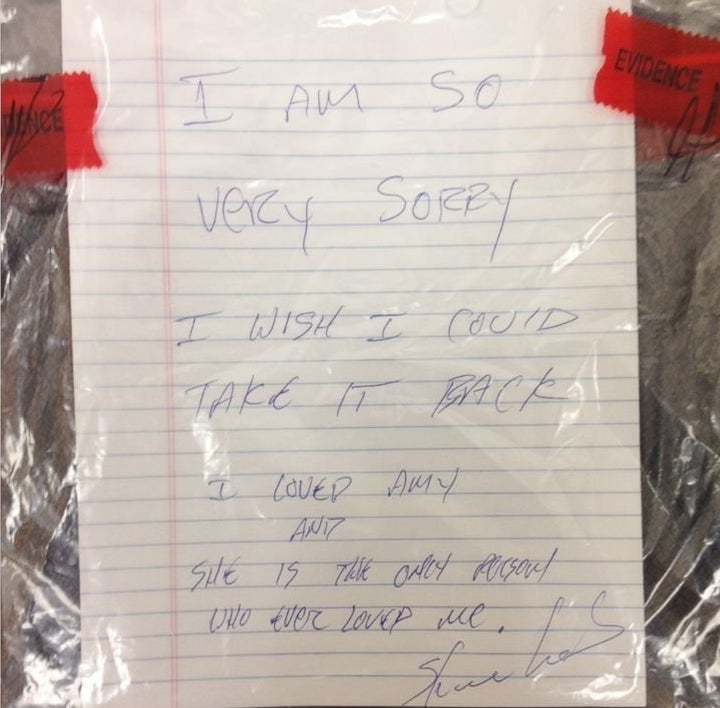 EVIDENCE
I AM SO
VERY SORRY
I WISH I COULD
TAKE IT BACK
I LOVED AMY
AND
SHE IS THE ONLY PERSON
WHO EVER LOVED ME.